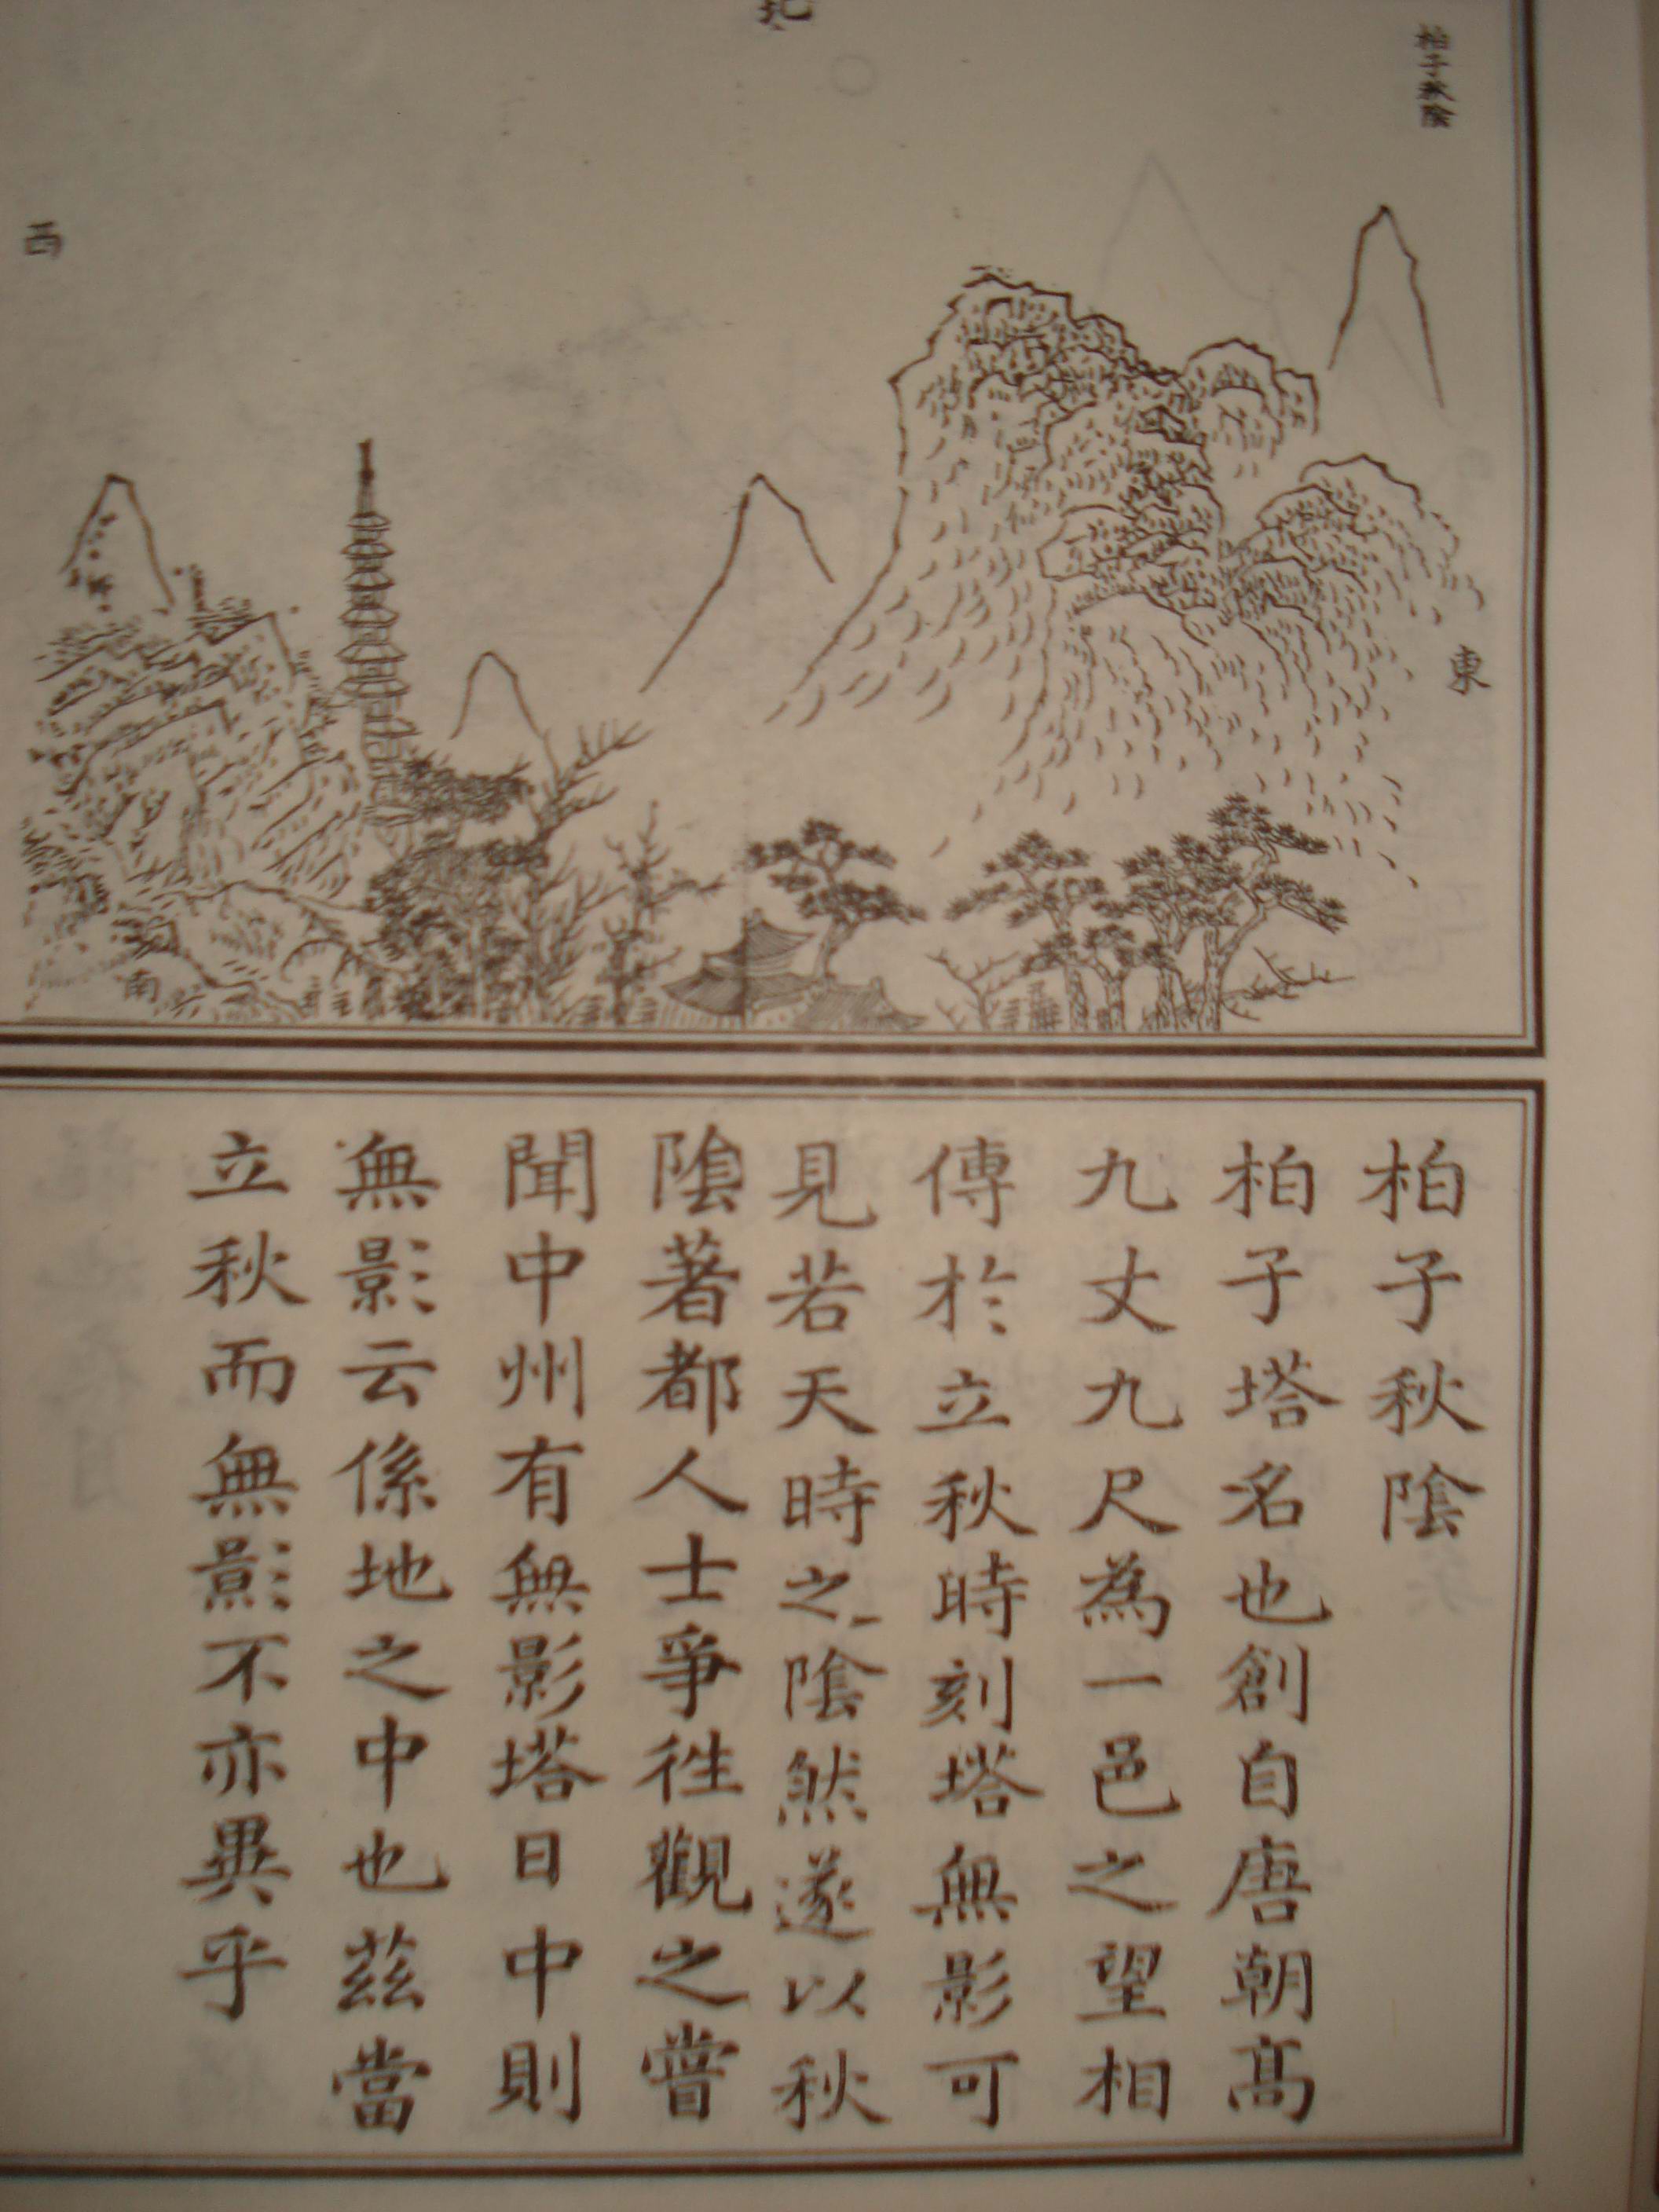 北
柏子秋陰
西
東
南
柏子秋陰
柏子塔名也創自唐朝高
九丈九尺為一邑之望相
傳於立秋時刻塔無影可
見若天時之陰然遂以秋
陰著都人士爭徃觀之嘗
聞中州有無影塔日中則
無影云係地之中也茲當
立秋而無影不亦異乎